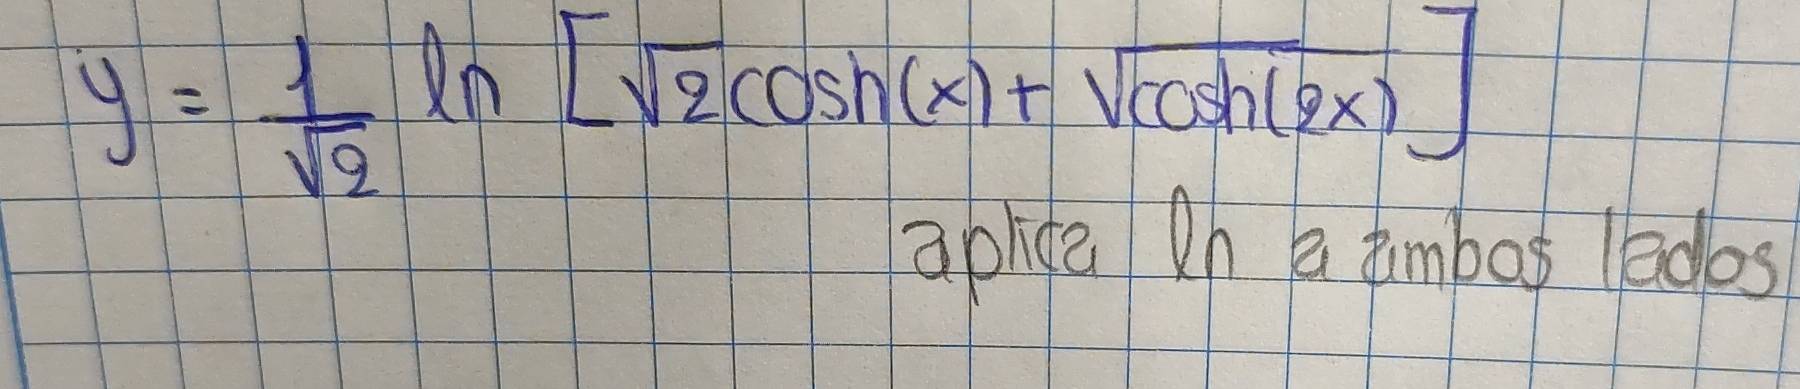 y = 1/√2 ln [√2 cosh(x) + √cosh(2x)]
aplica ln a ambos lados